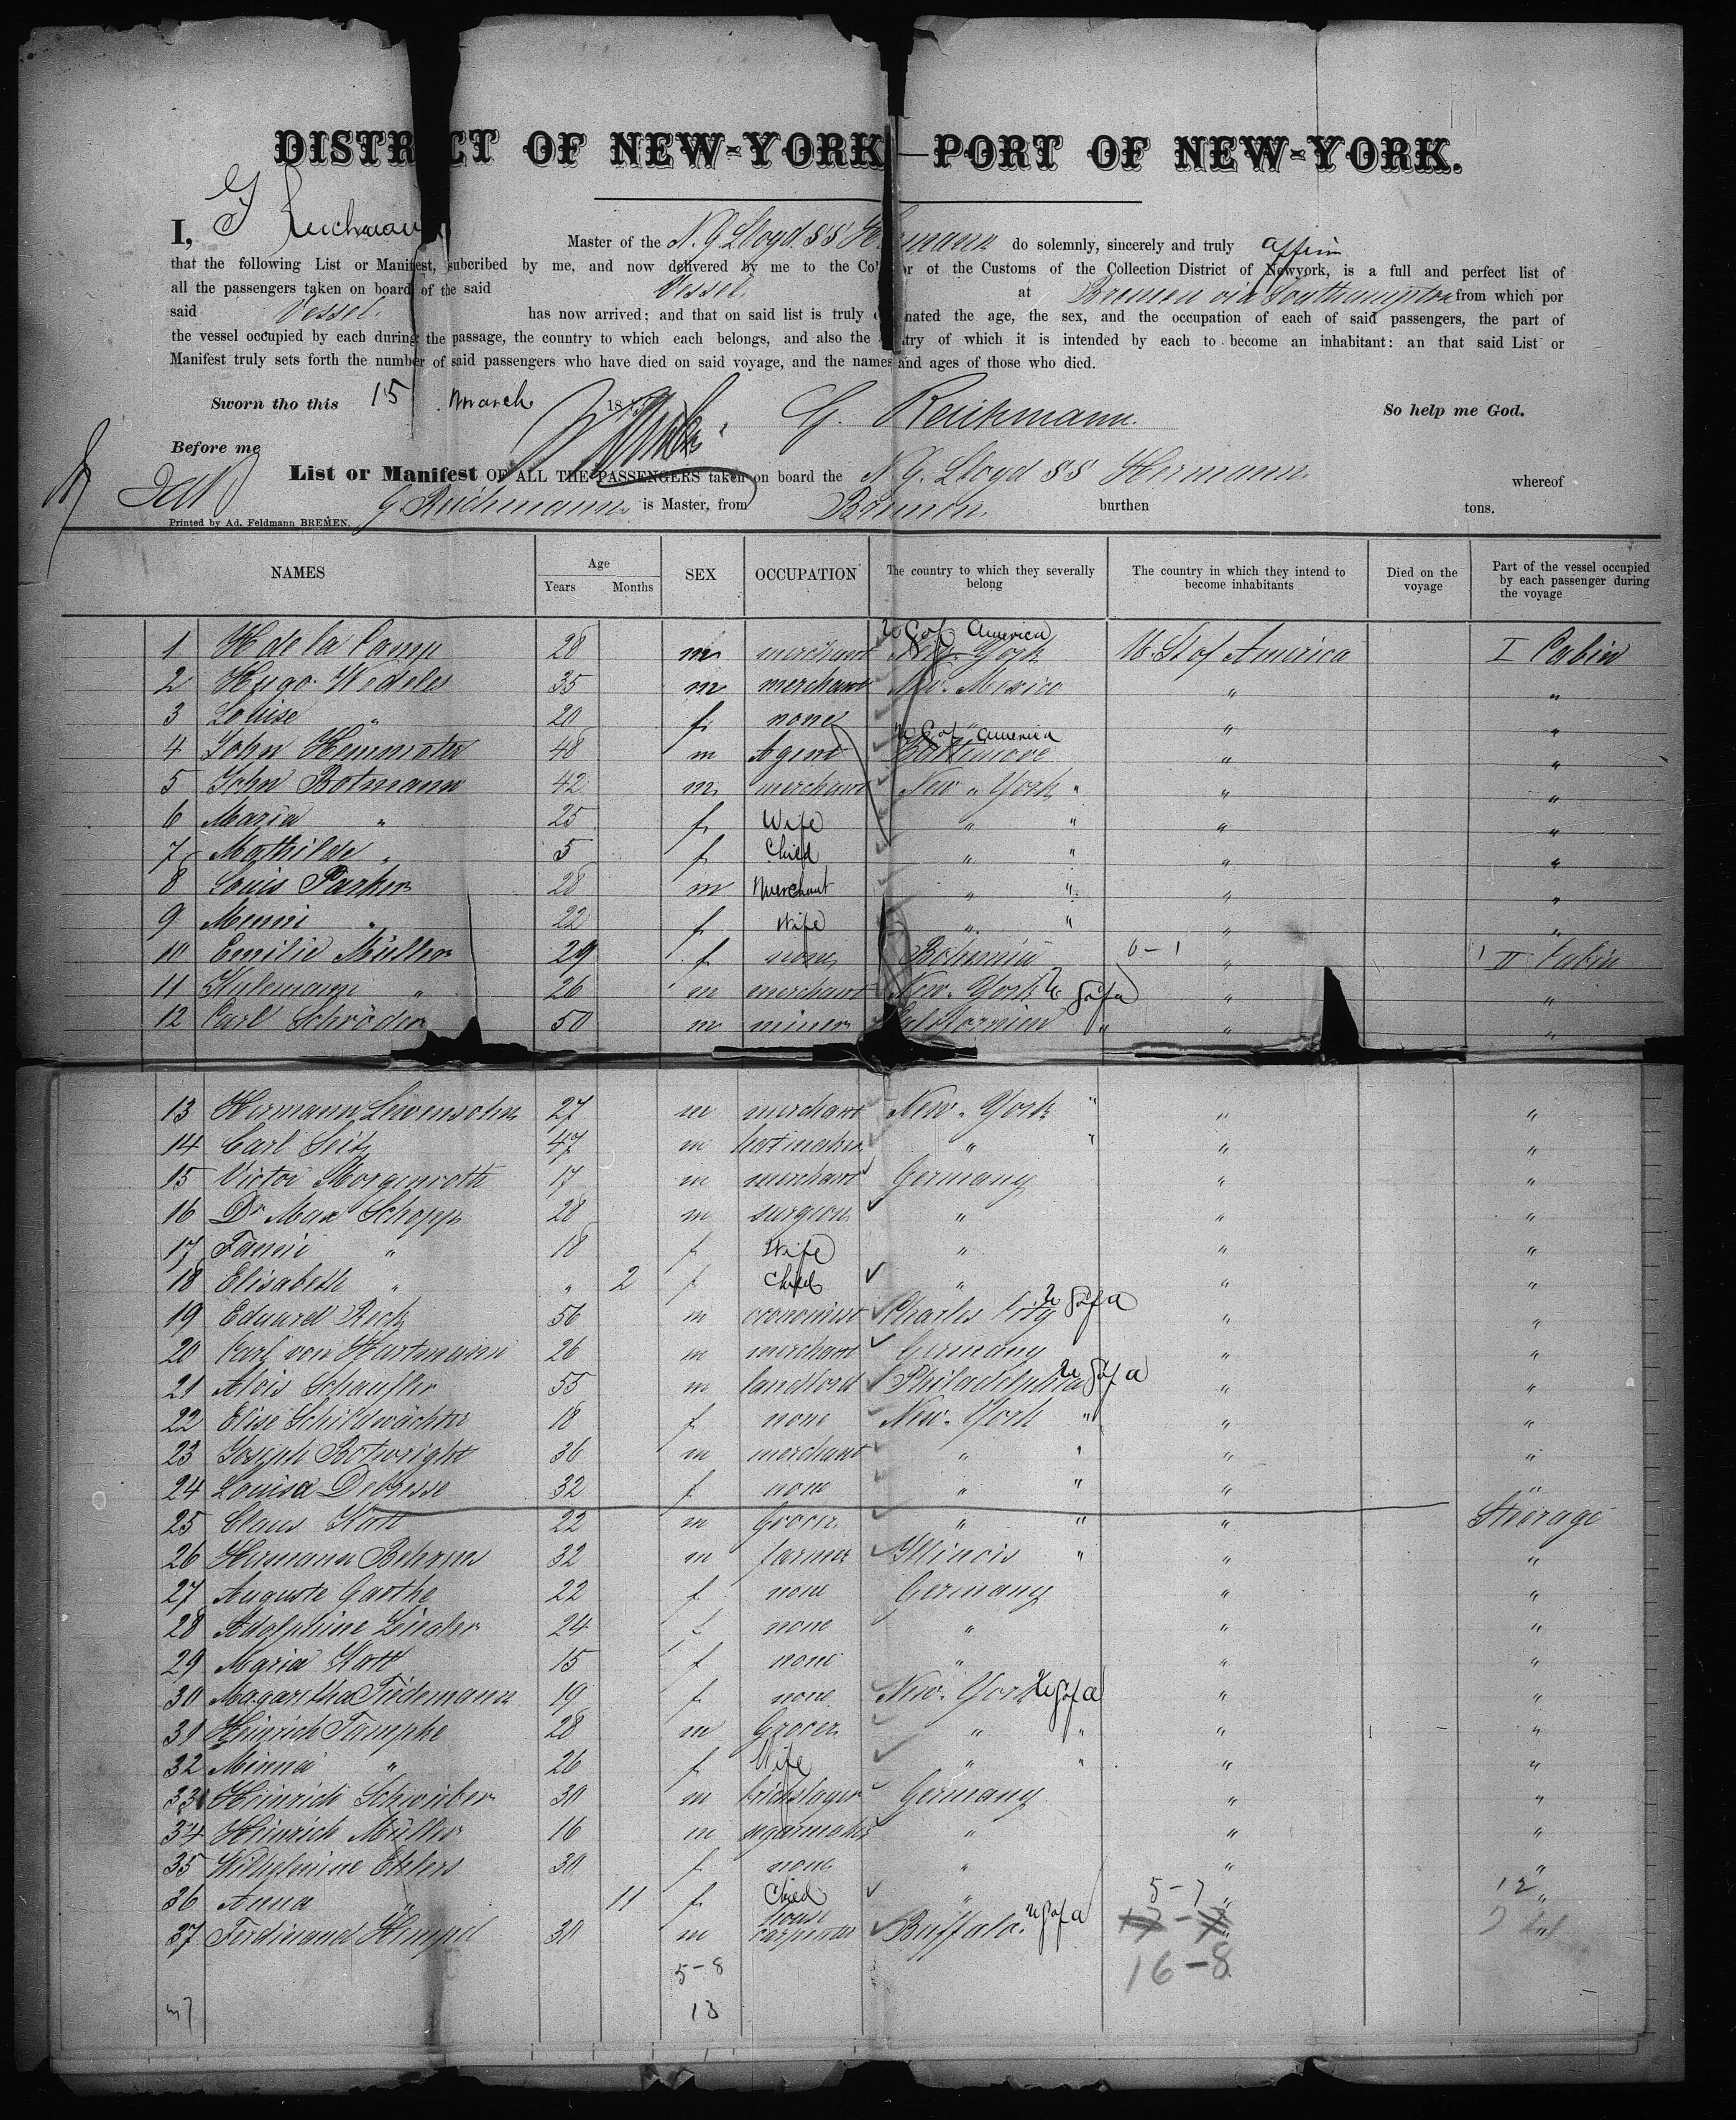 DISTRICT OF NEW-YORK—PORT OF NEW-YORK.
I, G Reichmann Master of the N. G. Lloyd SS Hermann do solemnly, sincerely and truly affirm
that the following List or Manifest, subcribed by me, and now delivered by me to the Co or ot the Customs of the Collection District of Newyork, is a full and perfect list of
all the passengers taken on board of the said Vessel. at Bremen via Southampton from which por
said Vessel. has now arrived: and that on said list is truly nated the age, the sex, and the occupation of each of said passengers, the part of
the vessel occupied by each during the passage, the country to which each belongs, and also the ntry of which it is intended by each to become an inhabitant: an that said List or
Manifest truly sets forth the number of said passengers who have died on said voyage, and the names and ages of those who died.
Sworn tho this 15 March 18 G. Reichmann. So help me God.
Before me
List or Manifest OF ALL THE PASSENGERS taken on board the N. G. Lloyd SS Hermann whereof
G Reichmann is Master, from Bremen burthen tons.
Printed by Ad. Feldmann BREMEN.
NAMES Age Years Months SEX OCCUPATION The country to which they severally belong The country in which they intend to become inhabitants Died on the voyage Part of the vessel occupied by each passenger during the voyage
U S of America
1 H de la Camp 28 m merchant New-York U. St of America I Cabin
2 Hugo Wedeles 35 m merchant New-Mexico " "
3 Louise " 20 f none " " "
U S of America
4 John Hemmeter 48 m Agent Baltimore " "
5 John Botmann 42 m merchant New-York " " "
6 Maria " 25 f Wife " " " "
7 Mathilde " 5 f Child " " " "
8 Louis Parker 28 m Merchant " " " "
9 Menni " 22 f Wife " " " "
10 Emilie Müller 29 f none Bohemia 0-1 " II Cabin
11 Kulemann " 26 m merchant New-York U S of a " "
12 Carl Schröder 50 m miner Californien " " "
13 Hermann Lewensohn 27 m merchant New-York " " "
14 Carl Seitz 47 m hatmaker " " " "
15 Victor Morgenroth 17 m merchant Germany " "
16 Dr Max Schopp 28 m surgeon " " "
17 Fanni " 18 f Wife " " "
18 Elisabeth " " 2 f Child " " "
19 Eduard Reck 56 m economist Charles City U S of a " "
20 Carl von Hartmann 26 m merchant Germany " "
21 Alois Schaufler 55 m landlord Philadelphia U S of a " "
22 Elise Schildwächter 18 f none New-York " " "
23 Joseph Botwright 36 m merchant " " " "
24 Louisa Debesse 32 f none " " " "
25 Claus Kott 22 m Grocer " " " Steerage
26 Hermann Behrens 32 m farmer Illinois " " "
27 Auguste Garthe 22 f none Germany " "
28 Adolphine Zingler 24 f none " " "
29 Maria Kott 15 f none " " "
30 Magaretha Tiedemann 19 f none New-York U S of a " "
31 Heinrich Tamphe 28 m Grocer " " " "
32 Minna " 26 f Wife " " " "
33 Heinrich Schreiber 30 m bricklayer Germany " "
34 Heinrich Müller 16 m segarmaker " " "
35 Wilhelmine Ehlers 30 f none " " "
36 Anna " 11 f Child " 5-7 " 12 "
37 Ferdinand Hempel 30 m house carpenter Buffalo. U S of a "
5-8 16-8
37 13